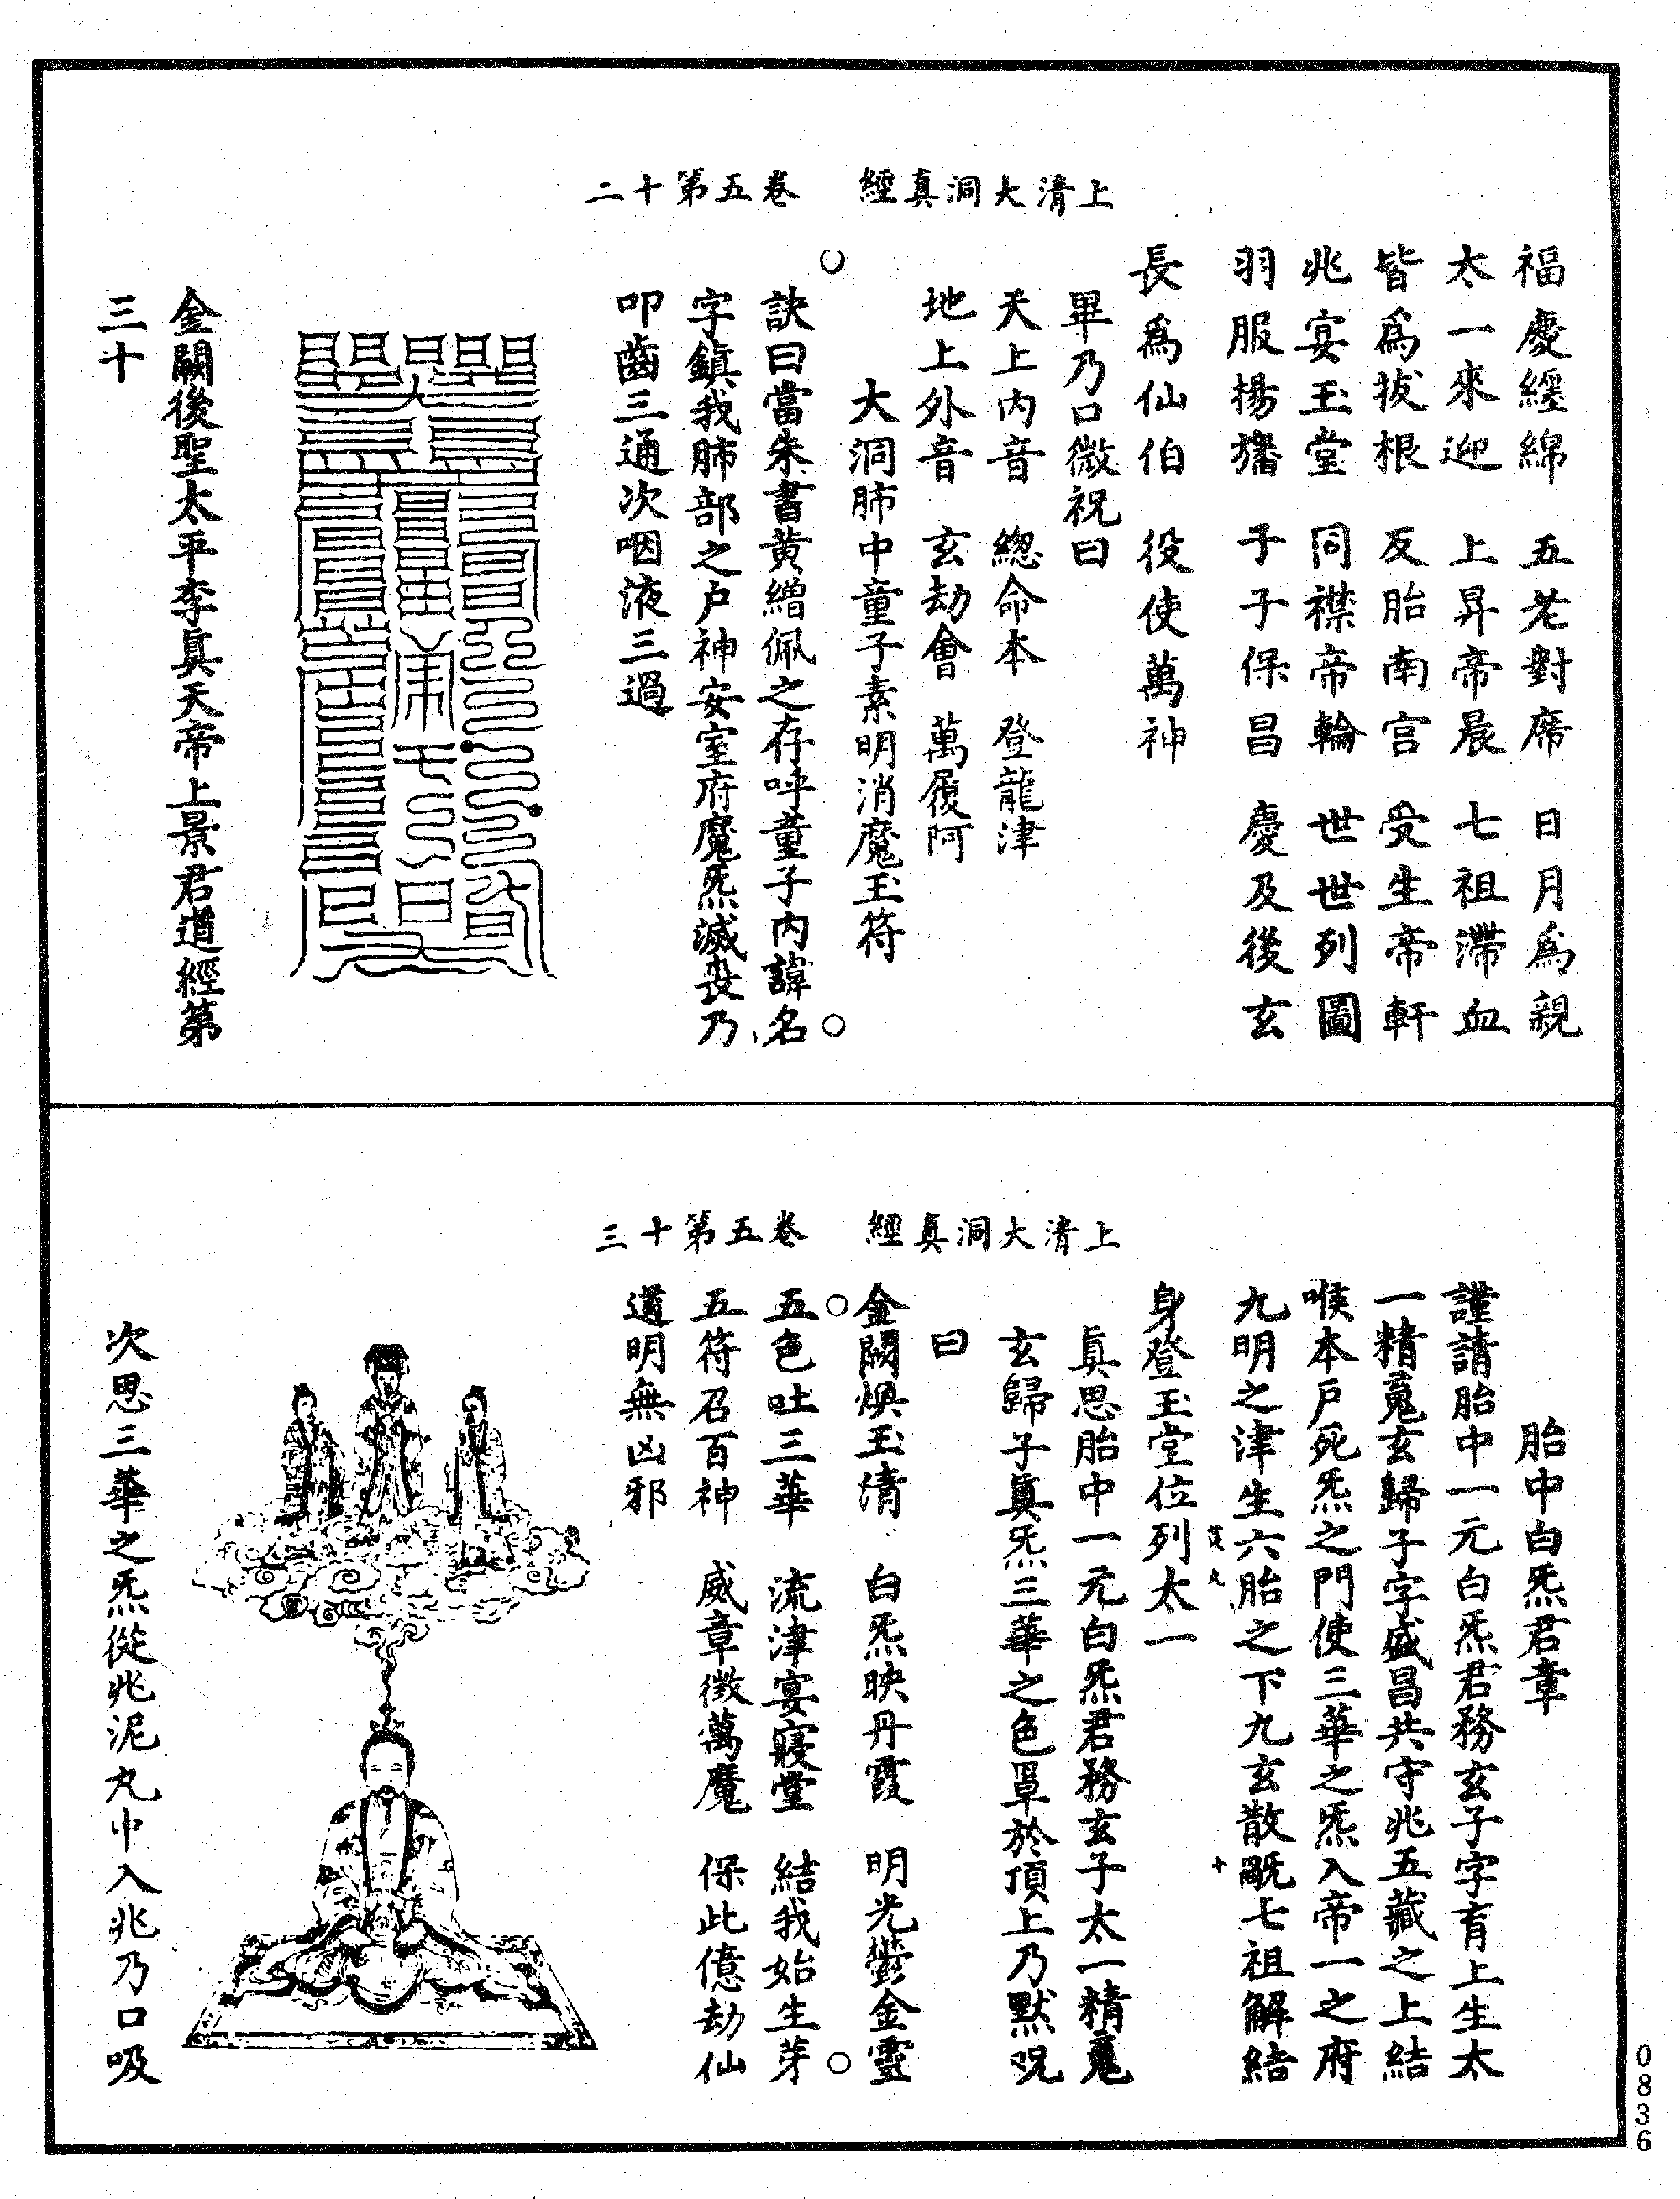 上清大洞真經　卷五第十二
福慶纏綿　五老對席　日月為親
太一來迎　上昇帝晨　七祖滯血
皆為拔根　反胎南宮　受生帝軒
兆宴玉堂　同襟帝輪　世世列圖
羽服揚旛　子子保昌　慶及後玄
長為仙伯　役使萬神
畢乃口微祝曰
天上內音　總命本　登龍津
地上外音　玄劫會　萬履阿
大洞肺中童子素明消魔玉符
訣曰當朱書黃繒佩之存呼童子內諱名
字鎮我肺部之戶神安室府魔炁滅喪乃
叩齒三通次咽液三過
金闕後聖太平李真天帝上景君道經第
三十
上清大洞真經　卷五第十三
胎中白炁君章
謹請胎中一元白炁君務玄子字育上生太
一精䰟玄歸子字盛昌共守兆五藏之上結
喉本戶死炁之門使三華之炁入帝一之府
九明之津生六胎之下九玄散翫七祖解結
身登玉堂位列太一
真思胎中一元白炁君務玄子太一精䰟
玄歸子真炁三華之色罩於頂上乃默呪
曰
金闕煥玉清　白炁映丹霞　明光鬱金靈
五色吐三華　流津宴寢堂　結我始生芽
五符召百神　威章徴萬魔　保此億劫仙
道明無凶邪
次思三華之炁從兆泥丸中入兆乃口吸
0836